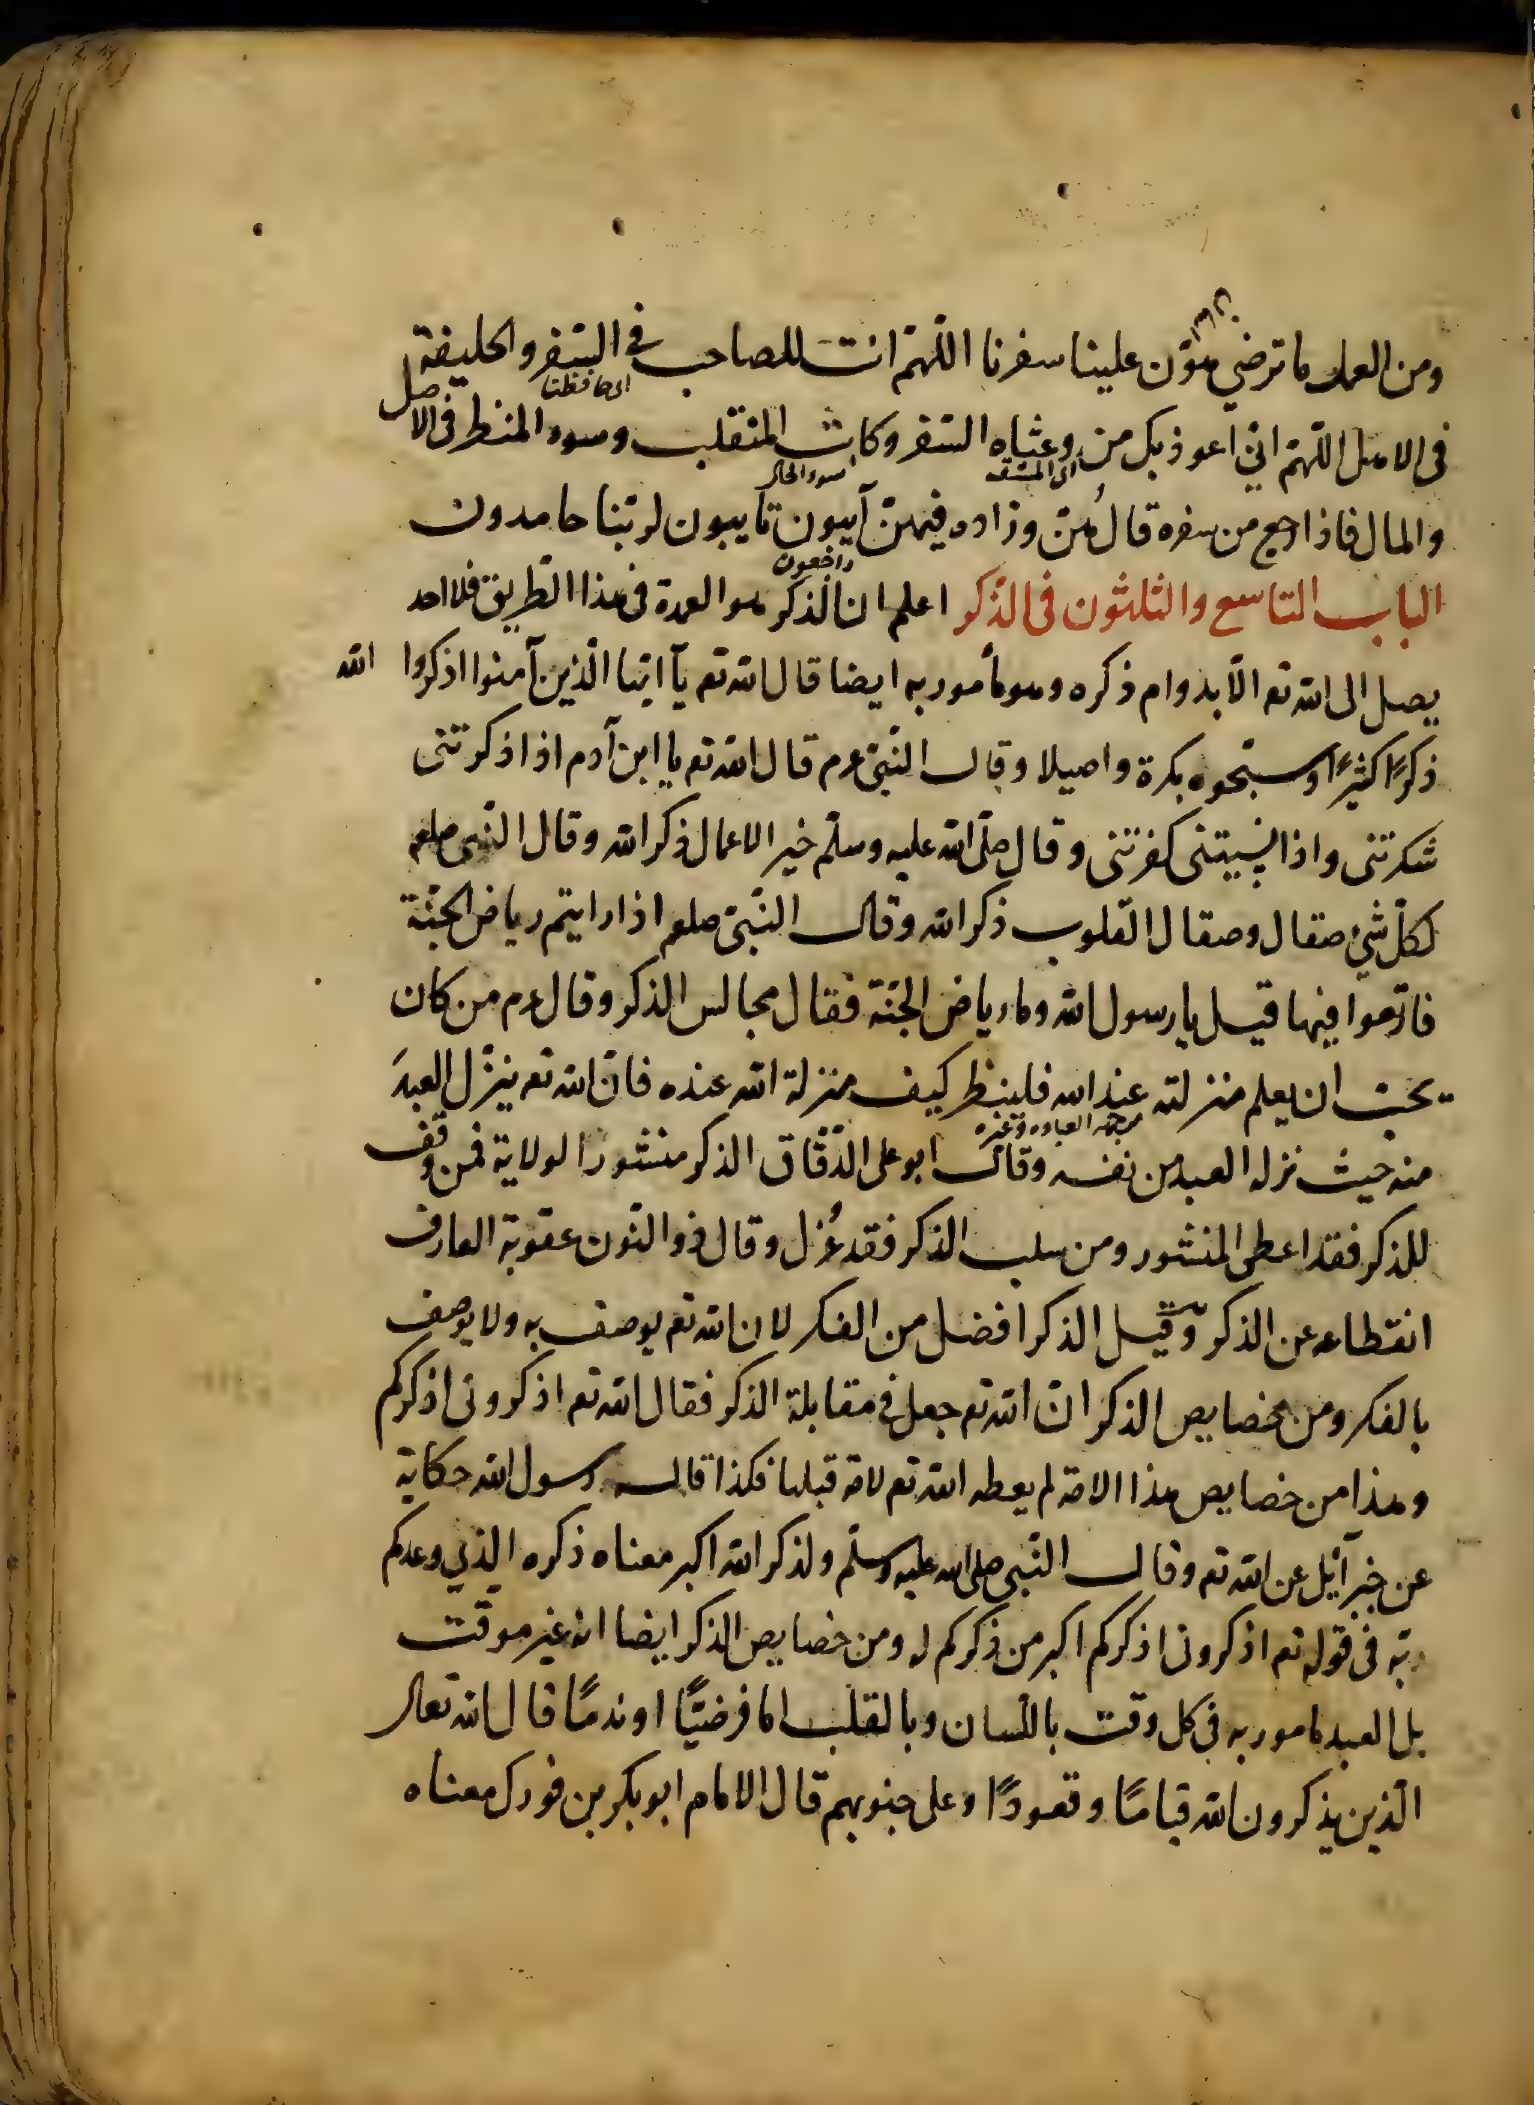 ومن العمل ما ترضى هوّن علينا سفرنا اللّهمّ انت الصاحب في السّفر والخليفة
اى حافظنا
فى الاهل اللّهمّ انّي اعوذ بك من وعثاء السّفر وكابة المنقلب وسوء المنظر فى الاهل
اى المشقة
سوء الحال
والمال فاذا رجع من سفره قالهنّ وزاد فيهنّ آيبون تايبون لربّنا حامدون
راجعون
الباب التاسع والثلثون فى الذكر اعلم ان الذكر هو العمدة فى هذا الطريق فلا احد
يصل الى الله تع الّا بدوام ذكره وهو مأمور به ايضا قال الله تع يآ ايّها الّذين آمنوا اذكروا الله
ذكرًا كثيرًا وسبّحوه بكرة واصيلا وقال النّبىّ ءم قال الله تع يا ابن آدم اذا ذكرتنى
شكرتنى واذا نسيتنى كفرتنى وقال صلّى الله عليه وسلّم خير الاعمال ذكر الله وقال النّبى صلعم
لكلّ شئ صقال وصقال القلوب ذكر الله وقال النّبىّ صلعم اذا رايتم رياض الجنّة
فارتعوا فيها قيل يا رسول الله وما رياض الجنّة فقال مجالس الذكر وقال ءم من كان
يحبّ ان يعلم منزلته عند الله فلينظر كيف منزلة الله عنده فانّ الله تع ينزّل العبدَ
من جهة العبادة وغيره
منه حيث نزله العبد من نفسه وقال ابو على الدّقّاق الذكر منشور الولاية فمن وقف
للذكر فقد اعطى المنشور ومن سلب الذكر فقد عُزل وقال ذو النّون عقوبة العارف
انقطاعه عن الذكر وقيل الذكر افضل من الفكر لان الله تع يوصف به ولا يوصف
بالفكر ومن خصايص الذكر انّ الله تع جعل فى مقابلة الذكر فقال الله تع اذكرونى اذكركم
وهذا من خصايص هذا الامّة لم يعطه الله تع لامّة قبلها فكذا قال رسول الله حكاية
عن جبرآئيل عن الله تع وقال النّبى صلى الله عليه وسلّم ولذكر الله اكبر معناه ذكره الذي وعدكم
به فى قوله تع اذكرونى اذكركم اكبر من ذكركم له ومن خصايص الذكر ايضا انه غير موقّت
بل العبد مامور به فى كل وقت باللّسان وبالقلب امّا فرضيًّا او ندمًا قال الله تعالى
الّذين يذكرون الله قيامًا وقعودًا وعلى جنوبهم قال الامام ابو بكر بن فورك معناه